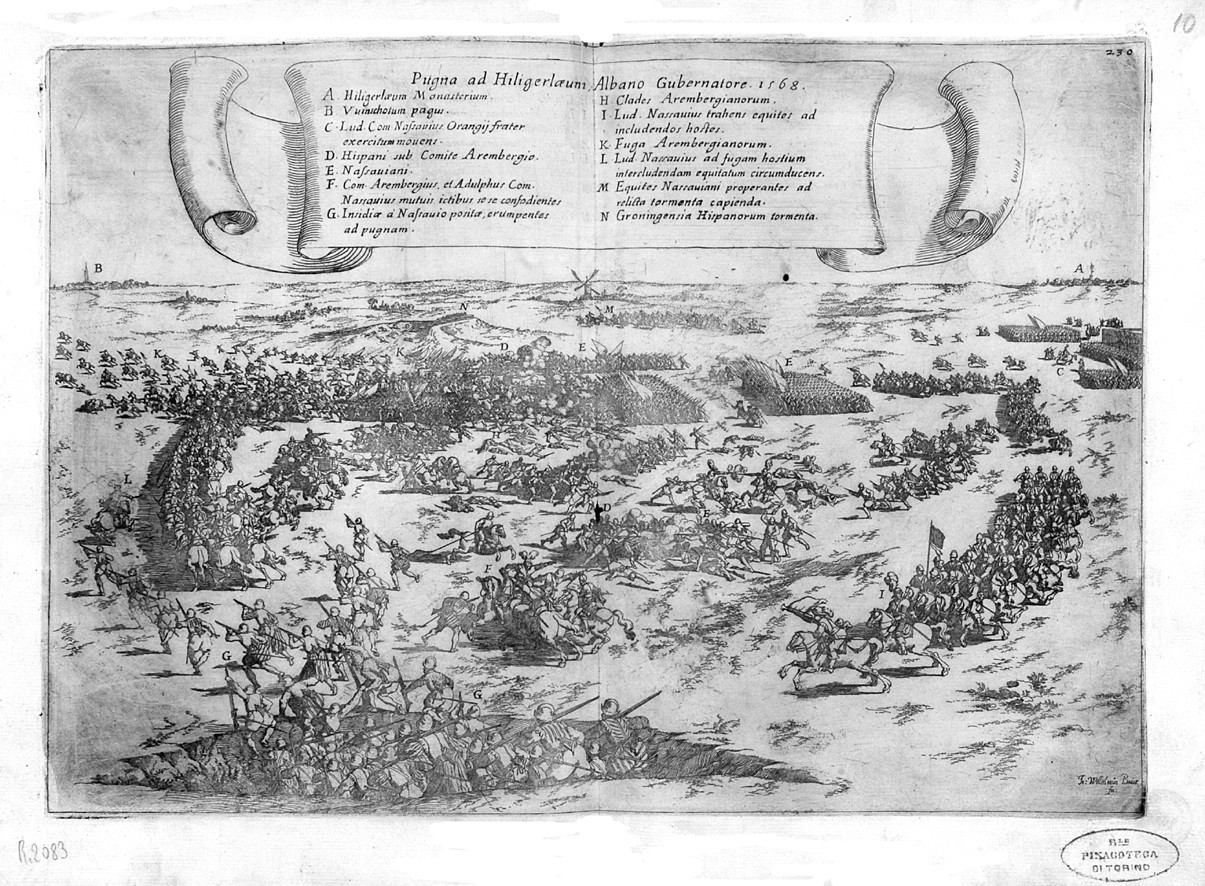 10
230
Pugna ad Hiligerlæum, Albano Gubernatore. 1568.
A Hiligerlæum Monasterium.
B Vuinschotum pagus.
C Lud. Com Naſsauius Orangij frater
exercitum mouens.
D. Hispani sub Comite Arembergio.
E. Naſsauiani.
F. Com. Arembergius, et Adulphus Com.
Naſsauius mutuis ictibus se se confodientes
G. Insidiæ à Naſsauio poſitæ, erumpentes
ad pugnam.
H Clades Arembergianorum.
I. Lud. Nassauius trahens equites ad
includendos hoſtes.
K. Fuga Arembergianorum.
L Lud Nassauius ad fugam hostium
intercludendam equitatum circumducens.
M Equites Nassauiani properantes ad
relicta tormenta capienda.
N Groningensia Hispanorum tormenta.
B
A
N
M
K
K
D
E
E
C
L
D
E
F
I
G
G
fe.
R.2083
PINACOTECA
DI TORINO